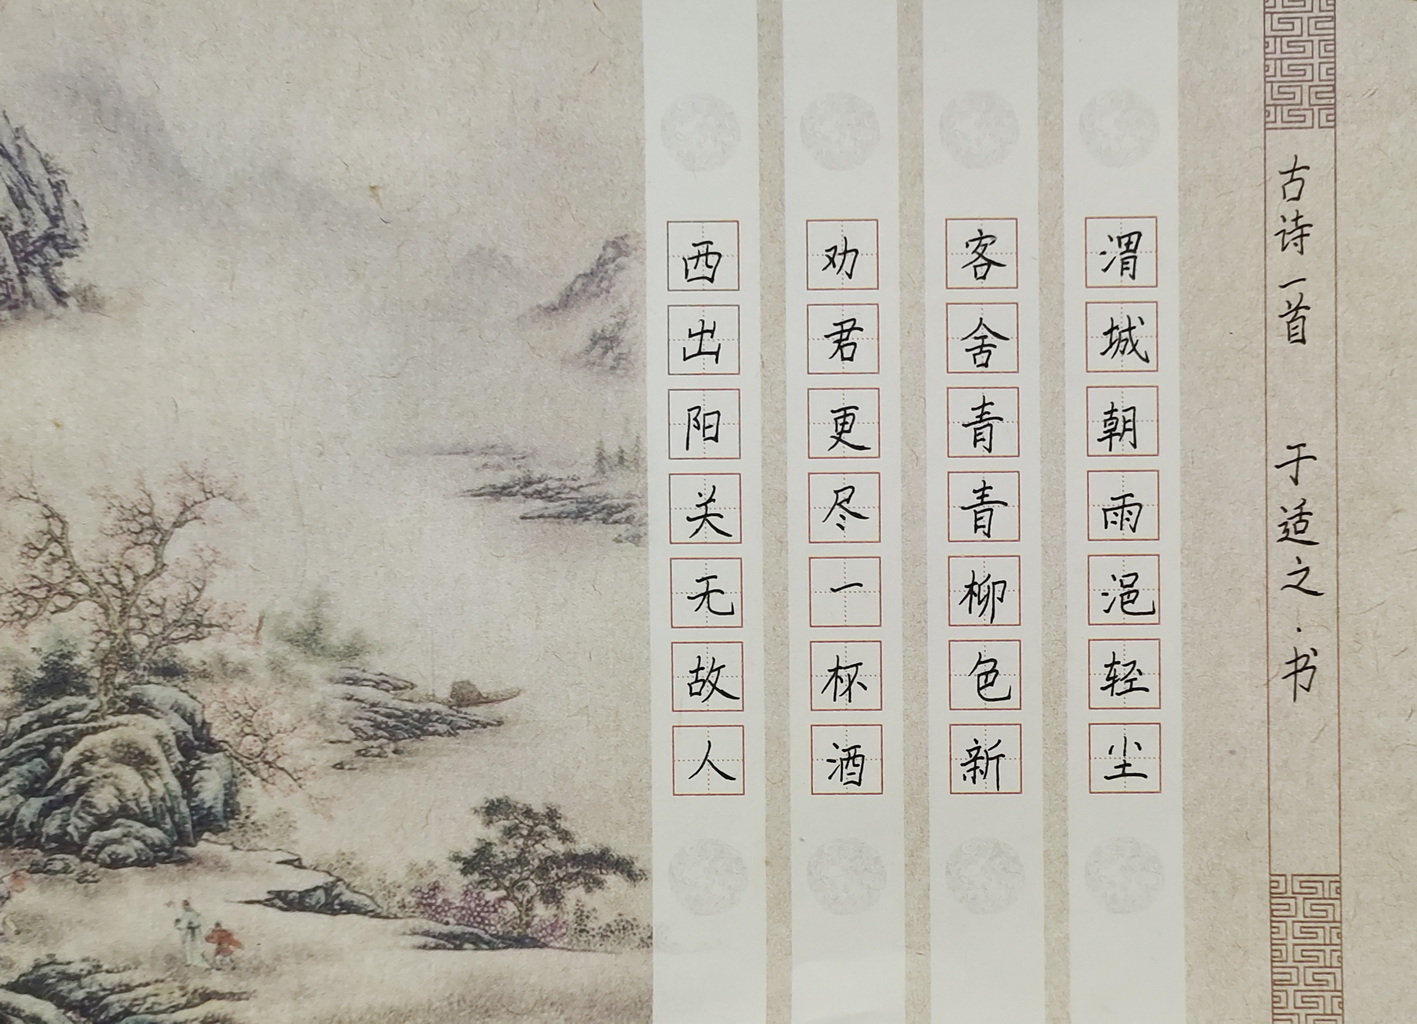 古诗一首 于适之·书
渭城朝雨浥轻尘
客舍青青柳色新
劝君更尽一杯酒
西出阳关无故人